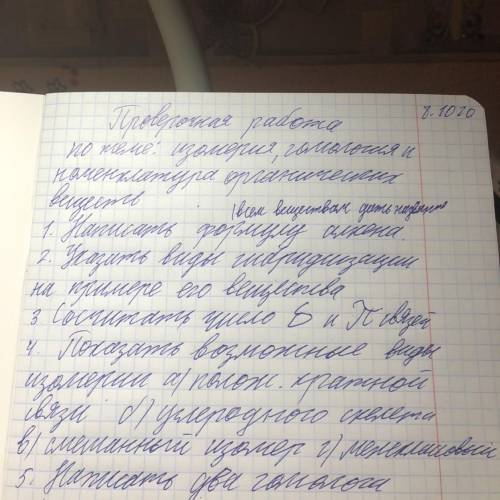 8.10.20
Проверочная работа
по теме: изомерия, гомология и
номенклатура органических
веществ
(всем веществам дать название
1. Написать формулу алкена.
2. Указать виды гибридизации
на примере его вещества
3 Сосчитать число б и П связей
4. Показать возможные виды
изомерии а) полож. кратной
связи б) углеродного скелета
в) смешанный изомер г) межклассовый
5. Написать два гомолога